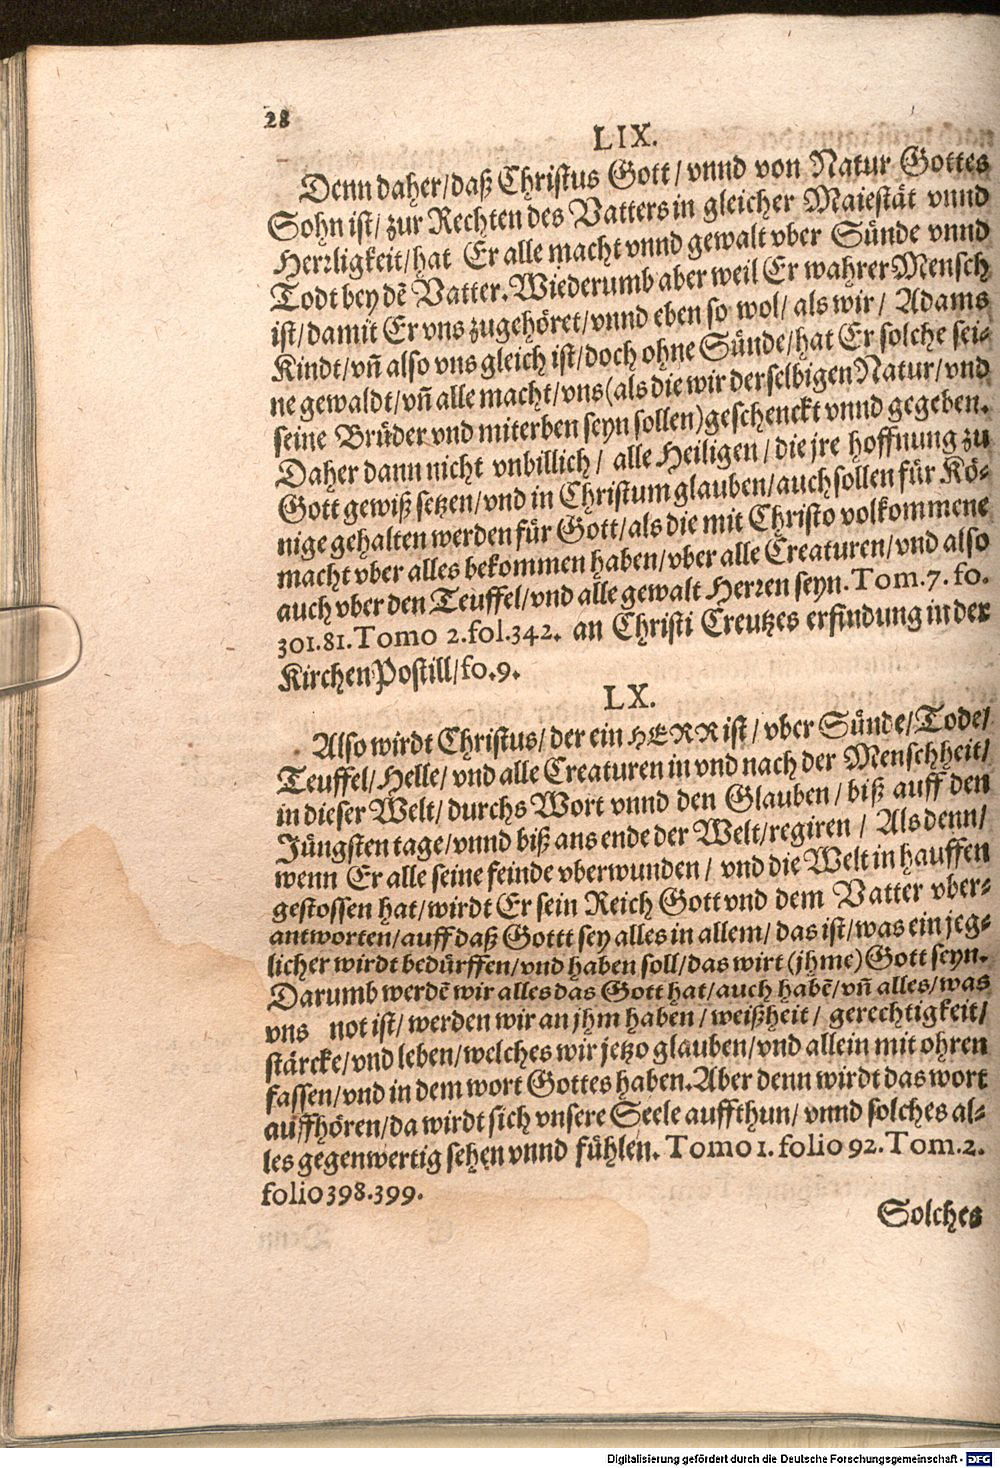 28
LIX.
Denn daher/daß Christus Gott/ vnnd von Natur Gottes
Sohn ist/ zur Rechten des Vatters in gleicher Maiestät vnnd
Herrligkeit/hat Er alle macht vnnd gewalt vber Sünde vnnd
Todt bey dē Vatter. Wiederumb aber weil Er wahrer Mensch
ist/damit Er vns zugehöret/vnnd eben so wol/ als wir/ Adams
Kindt/vn̄ also vns gleich ist/doch ohne Sünde/hat Er solche sei-
ne gewaldt/vn̄ alle macht/vns(als die wir derselbigen Natur/vnd
seine Brüder vnd miterben seyn sollen)geschenckt vnnd gegeben.
Daher dann nicht vnbillich/ alle Heiligen/die jre hoffnung zu
Gott gewiß setzen/vnd in Christum glauben/auch sollen für Kö-
nige gehalten werden für Gott/als die mit Christo volkommene
macht vber alles bekommen haben/vber alle Creaturen/vnd also
auch vber den Teuffel/vnd alle gewalt Herren seyn. Tom.7. fo.
301.81. Tomo 2.fol.342. an Christi Creutzes erfindung in der
Kirchen Postill/fo.9.
LX.
Also wirdt Christus/ der ein HERR ist/ vber Sünde/Tode/
Teuffel/Helle/vnd alle Creaturen in vnd nach der Menschheit/
in dieser Welt/durchs Wort vnnd den Glauben/biß auff den
Jüngsten tage/vnnd biß ans ende der Welt/regiren/ Als denn/
wenn Er alle seine feinde vberwunden/ vnd die Welt in hauffen
gestossen hat/wirdt Er sein Reich Gott vnd dem Vatter vber-
antworten/auff daß Gottt sey alles in allem/ das ist/was ein jeg-
licher wirdt bedürffen/vnd haben soll/das wirt (jhme)Gott seyn.
Darumb werdē wir alles das Gott hat/auch habē/vn̄ alles/was
vns not ist/ werden wir an jhm haben/ weißheit/ gerechtigkeit/
stärcke/vnd leben/welches wir jetzo glauben/vnd allein mit ohren
fassen/vnd in dem wort Gottes haben. Aber denn wirdt das wort
auffhören/da wirdt sich vnsere Seele auffthun/ vnnd solches al-
les gegenwertig sehen vnnd fühlen. Tomo 1. folio 92. Tom.2.
folio 398.399.
Solches
Digitalisierung gefördert durch die Deutsche Forschungsgemeinschaft - DFG